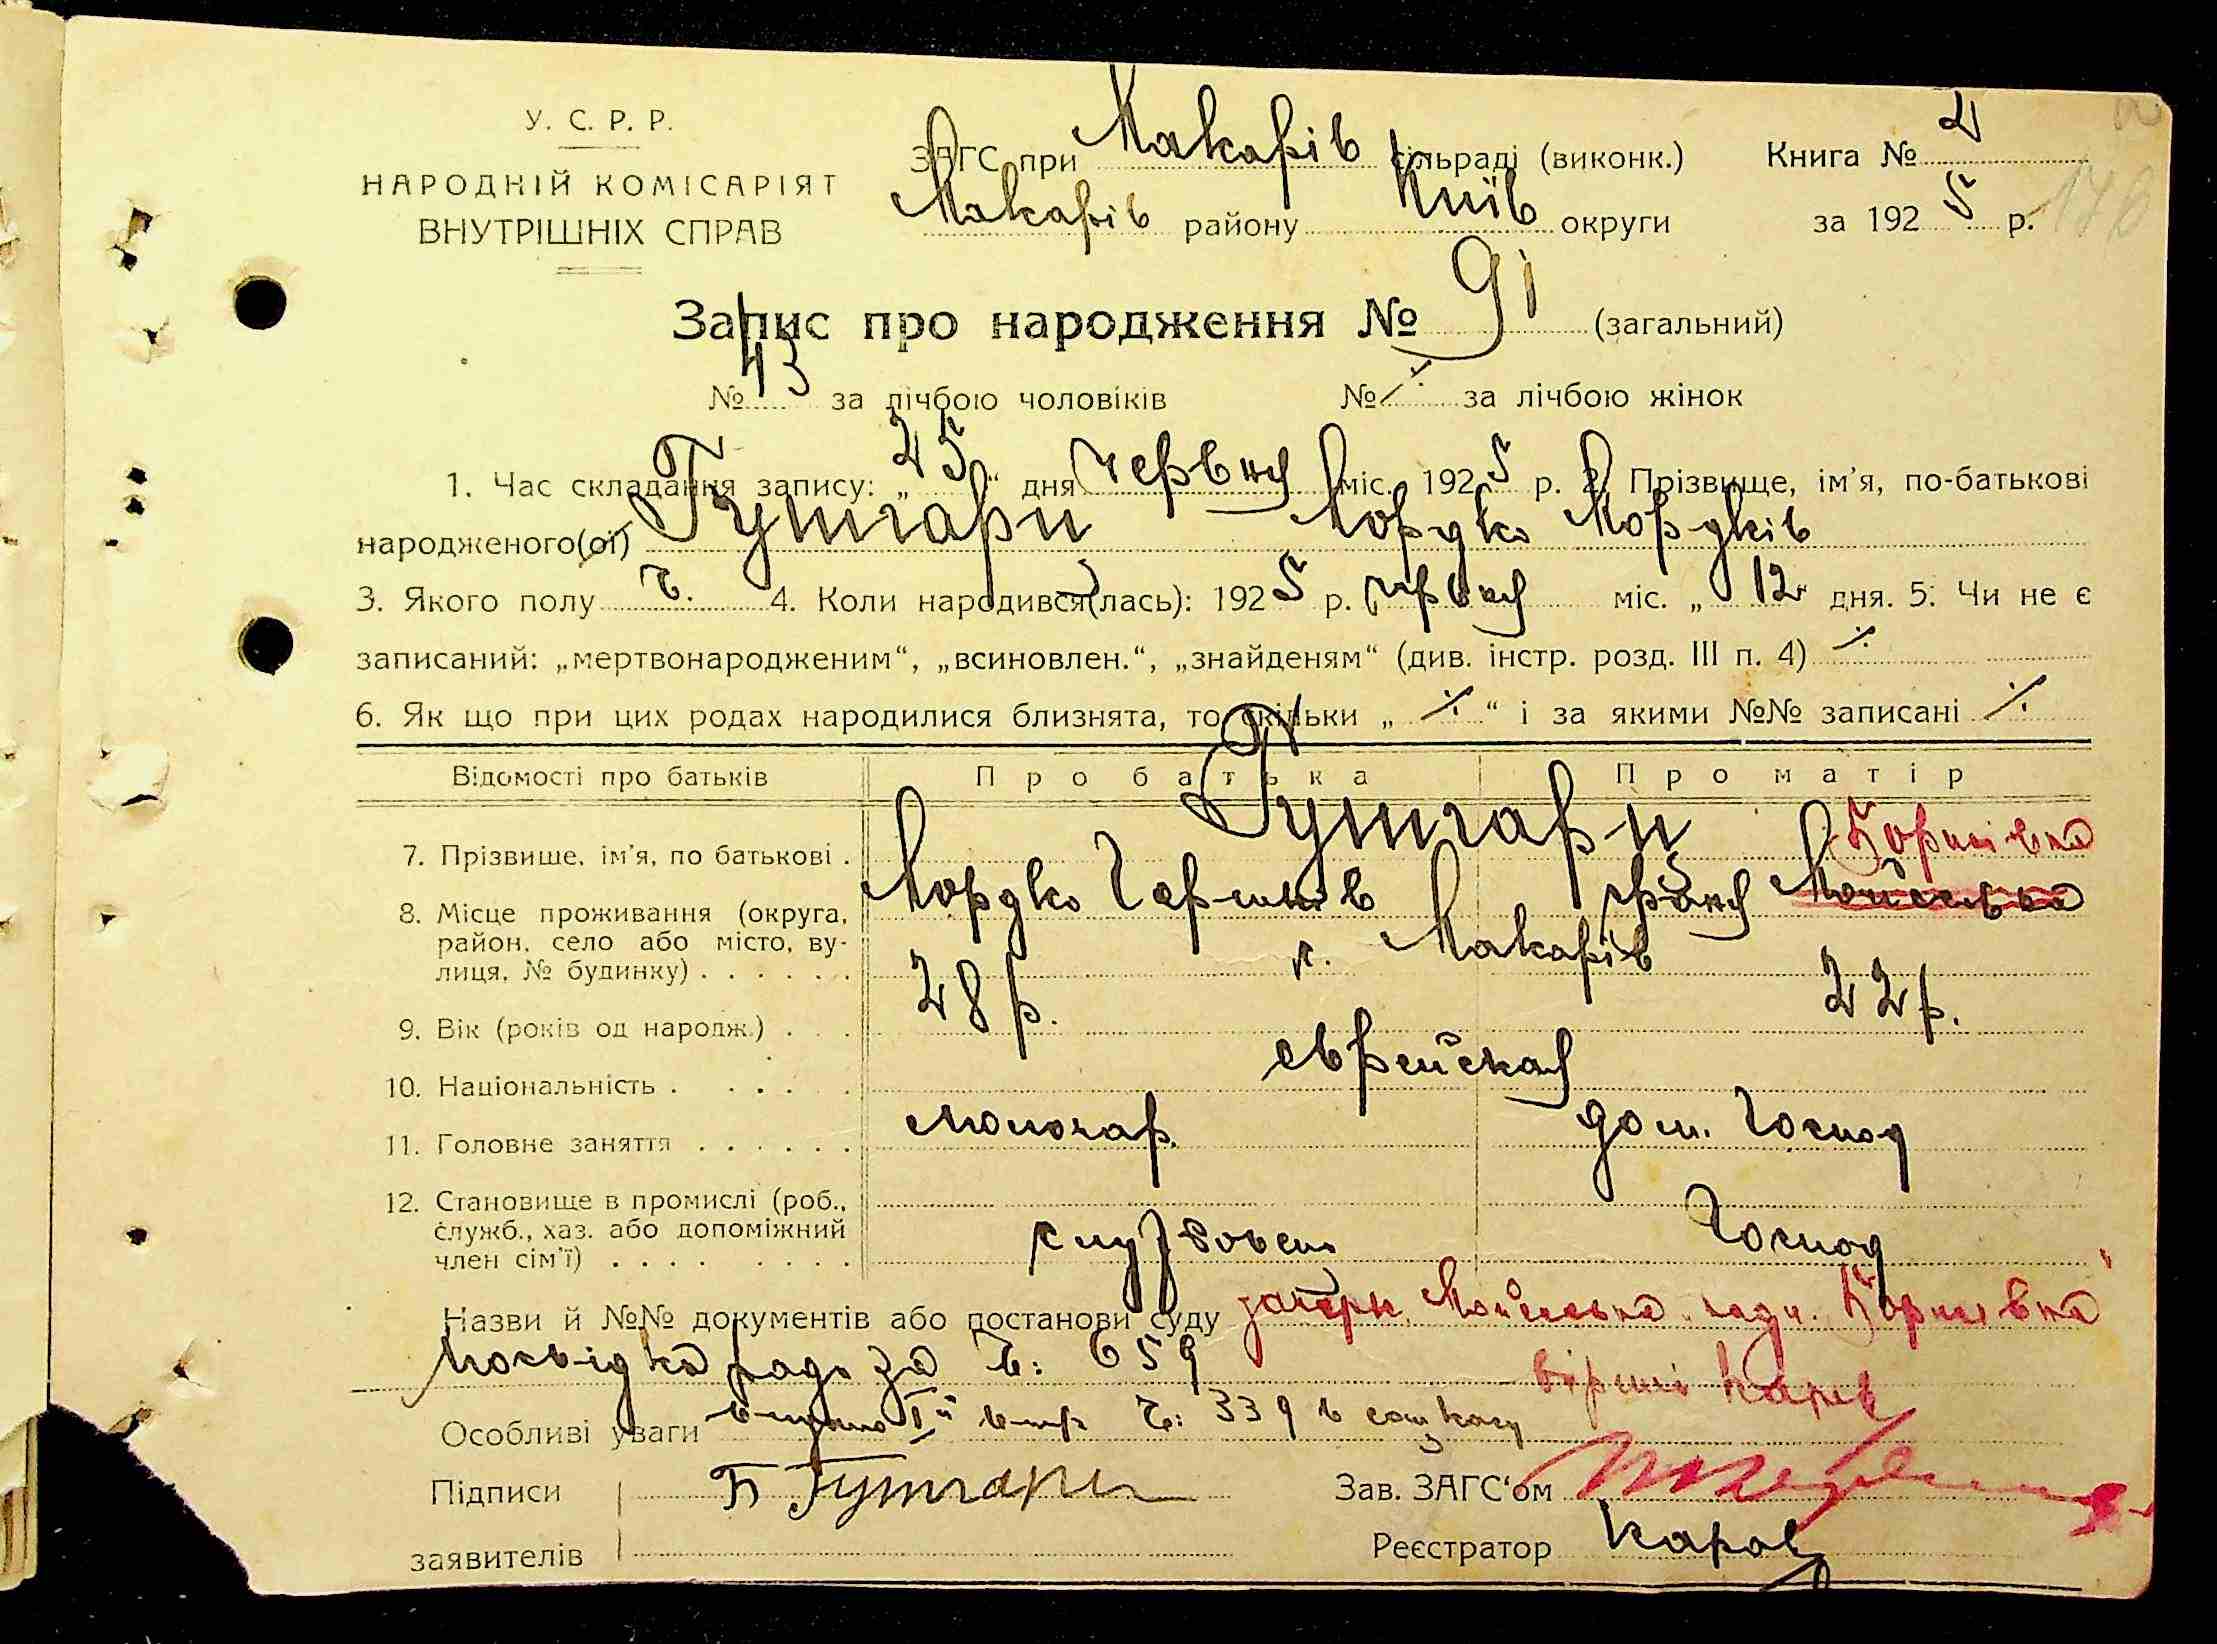 У. С. Р. Р.
НАРОДНІЙ КОМІСАРІЯТ
ВНУТРІШНІХ СПРАВ
ЗАГС при Макарів сільраді (виконк.) Книга № 2
Макарів району Київ округи за 1925 р. 176
Запис про народження № 91 (загальний)
№ 43 за лічбою чоловіків № ·/· за лічбою жінок
1. Час складання запису: „25“ дня червня міс. 1925 р. 2. Прізвище, ім'я, по-батькові
народженого(ої) Гутгарц Мордко Мордків
3. Якого полу ч. 4. Коли народився(лась): 1925 р. червня міс. „12“ дня. 5. Чи не є
записаний: „мертвонародженим“, „всиновлен.“, „знайденям“ (див. інстр. розд. III п. 4) ·/·
6. Як що при цих родах народилися близнята, то скільки „ ·/· “ і за якими №№ записані ·/·
Відомості про батьків Про батька Про матір
7. Прізвище, ім'я, по батькові . Гутгарц Борисівна
Мордко Гершків Мойсеевна
8. Місце проживання (округа,
район, село або місто, ву-
лиця, № будинку) . . . . . . м. Макарів
9. Вік (років од народж.) . . . 28 р. 22 р.
10. Національність . . . . еврейская
11. Головне заняття . . . . . . дом. Господ
12. Становище в промислі (роб.,
служб., хаз. або допоміжний
член сім'ї) . . . . . . . . Господ
Назви й №№ документів або постанови суду Мойсеевна Борисівна
Посвідка за ч: 659
вірити Каров
Особливі уваги ч: 339 в
Підписи Б Гутгарц Зав. ЗАГС'ом
заявителів Реєстратор Каров